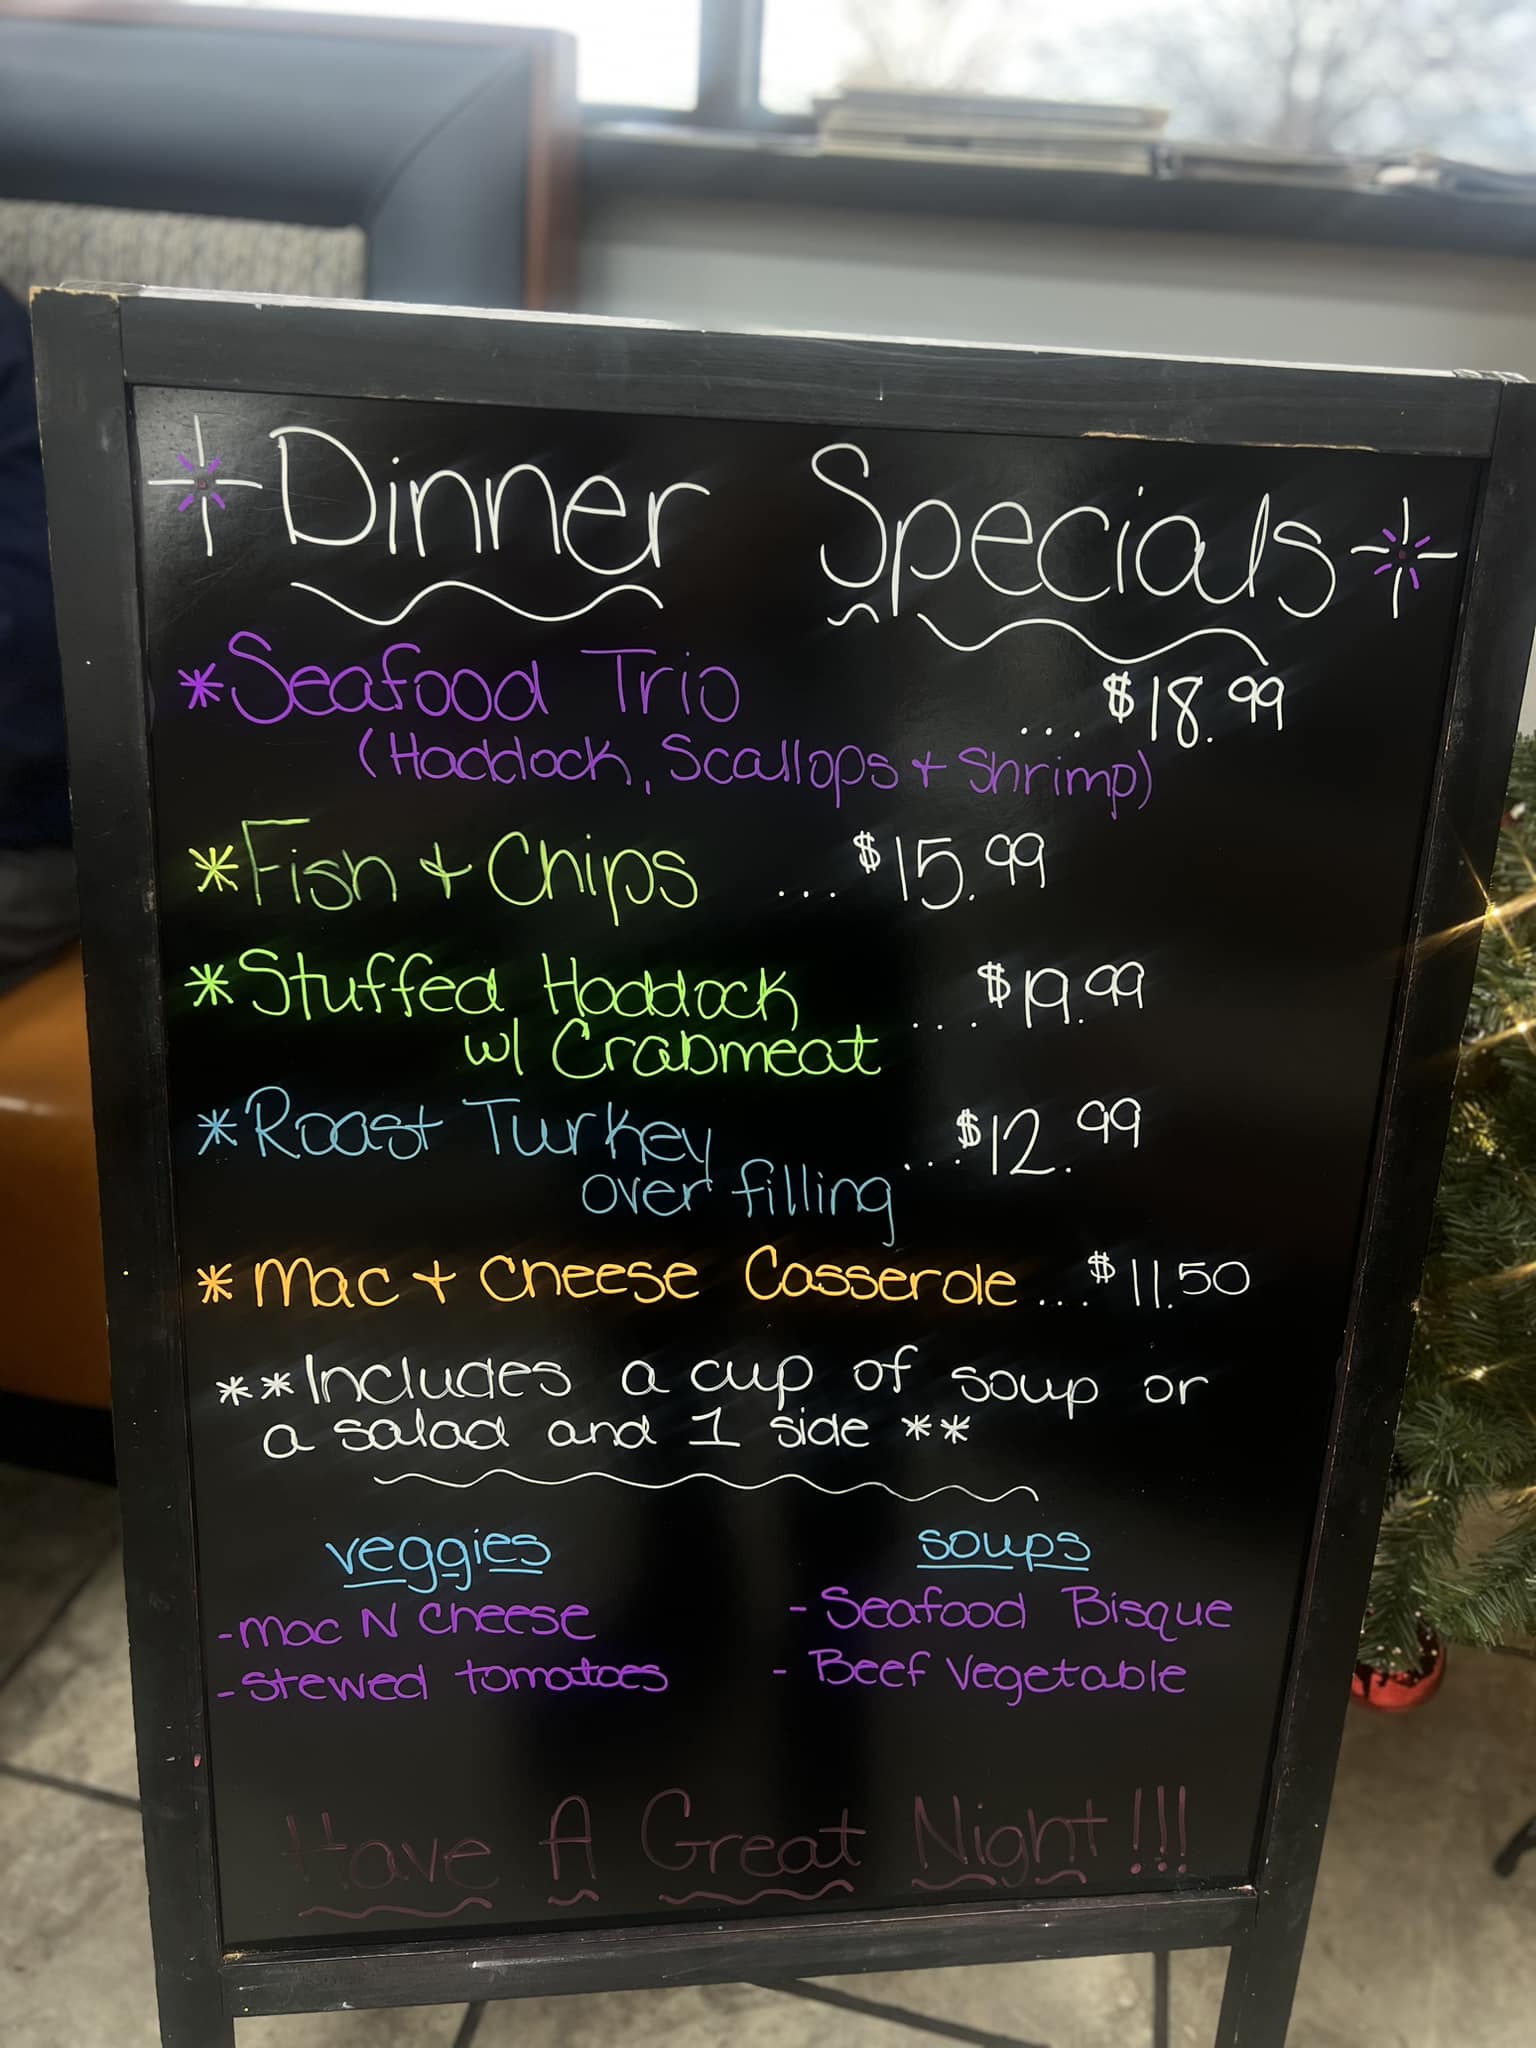 Dinner Specials
*Seafood Trio ... $18.99
(Haddock, Scallops + Shrimp)
*Fish + Chips ... $15.99
*Stuffed Haddock ... $19.99
w/ Crabmeat
*Roast Turkey ... $12.99
over filling
*Mac + Cheese Casserole ... $11.50
**Includes a cup of soup or
a salad and 1 side **
veggies
-Mac N Cheese
-Stewed tomatoes
soups
- Seafood Bisque
- Beef Vegetable
Have A Great Night!!!